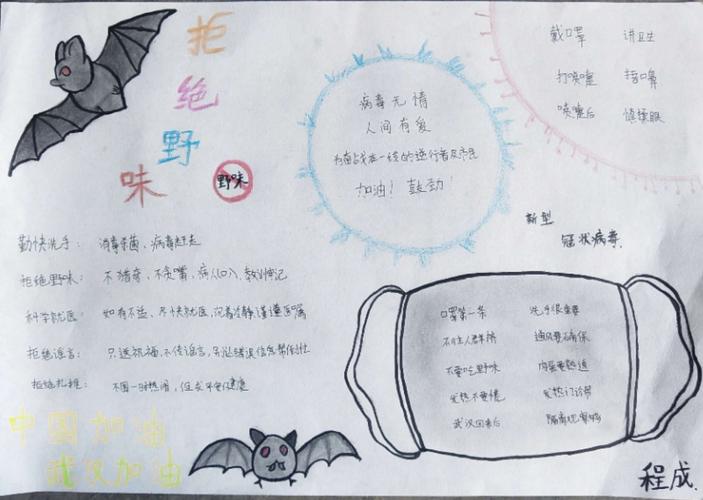 拒
绝
野
味
野味
病毒无情
人间有爱
加油! 鼓劲!
戴口罩 讲卫生
打喷嚏 捂口鼻
喷嚏后 慎揉眼
新型
冠状病毒
勤快洗手: 消毒杀菌、病毒赶走
拒绝野味: 不猎奇、不贪嘴,病从口入、教训牢记
科学就医: 如有不适、尽快就医,沉着冷静谨遵医嘱
拒绝谣言: 只送祝福,不传谣言,
拒绝扎堆: 不图一时热闹,但求平安健康
中国加油
武汉加油
口罩第一条 洗手很重要
不往人群挤 通风要确保
不要吃野味 肉蛋要熟透
发热不要慌 发热门诊帮
武汉回来后 隔离
程成